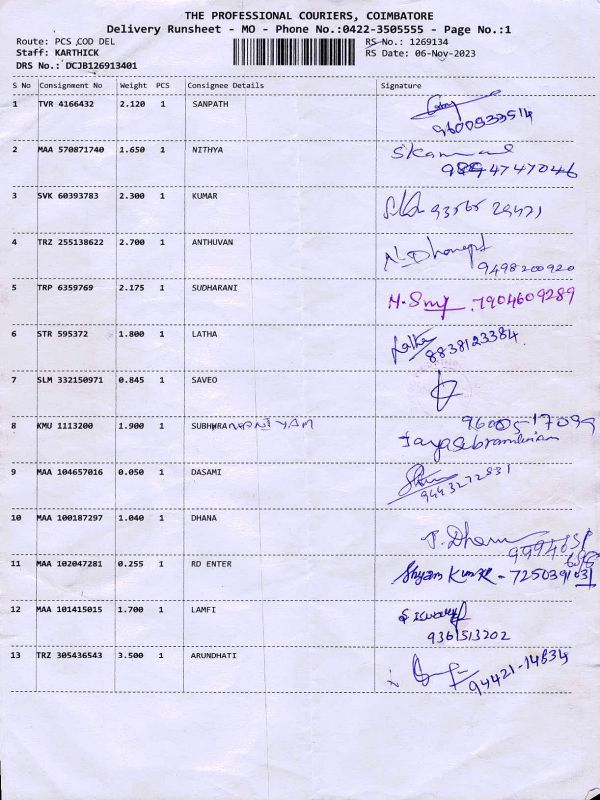 THE PROFESSIONAL COURIERS, COIMBATORE
Delivery Runsheet - MO - Phone No.:0422-3505555 - Page No.:1
Route: PCS COD DEL RS No.: 1269134
Staff: KARTHICK RS Date: 06-Nov-2023
DRS No.: DCJB126913401
S No Consignment No Weight PCS Consignee Details Signature
1 TVR 4166432 2.120 1 SANPATH
9600933514
2 MAA 570871740 1.650 1 NITHYA
4747046
3 SVK 60393783 2.300 1 KUMAR
4 TRZ 255138622 2.700 1 ANTHUVAN
9498200920
5 TRP 6359769 2.175 1 SUDHARANI 7904609289
6 STR 595372 1.800 1 LATHA Latha
8838123384
7 SLM 332150971 0.845 1 SAVEO
8 KMU 1113200 1.900 1 SUBHMRANANIYAM
9 MAA 104657016 0.050 1 DASAMI
9443272831
10 MAA 100187297 1.040 1 DHANA
11 MAA 102047281 0.255 1 RD ENTER Shyam Kumar - 7250391031
12 MAA 101415015 1.700 1 LAMFI
9361513202
13 TRZ 305436543 3.500 1 ARUNDHATI
94421-14834